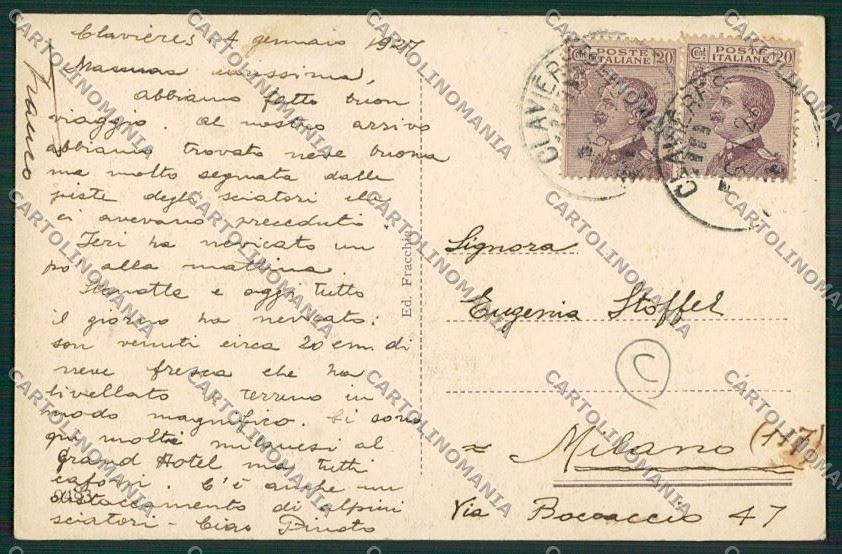 Clavières 4 gennaio 1927
Mamma carissima,
abbiamo fatto buon
viaggio. Al nostro arrivo
abbiamo trovato neve buona
ma molto segnata dalle
piste degli sciatori che
ci avevano preceduti
Ieri ha nevicato un
pò alla mattina.
Stanotte e oggi tutto
il giorno ha nevicato:
son venuti circa 20 cm. di
neve fresca che ha
livellato il terreno in
modo magnifico. Ci sono
qui molti milanesi al
Grand Hotel ma tutti
cafoni. C'è anche un
distaccamento di alpini
sciatori - Ciao Pinoto
Franco
Ed. Fracchia
Cent POSTE ITALIANE 20
Cent POSTE ITALIANE 20
CLAVIERES
CLAVIERES
Signora
Eugenia Stoffel
C
Milano (117)
Via Boccaccio 47
CARTOLINOMANIA